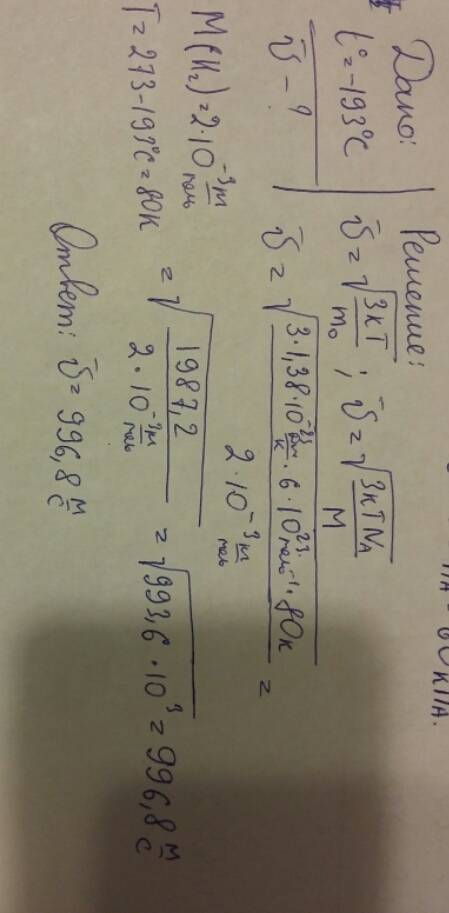 Дано:
t°=-193°C
v̄ - ?
M(H₂)=2·10⁻³ кг/моль
T=273-193°C=80K
Решение:
v̄ = √(3kT/m₀); v̄ = √(3kTNₐ/M)
v̄ = √(3·1,38·10⁻²³ Дж/К · 6·10²³ моль⁻¹ · 80К / 2·10⁻³ кг/моль) =
= √(1987,2 / 2·10⁻³ кг/моль) = √(993,6·10³) = 996,8 м/с
Ответ: v̄ = 996,8 м/с
60 кПА.